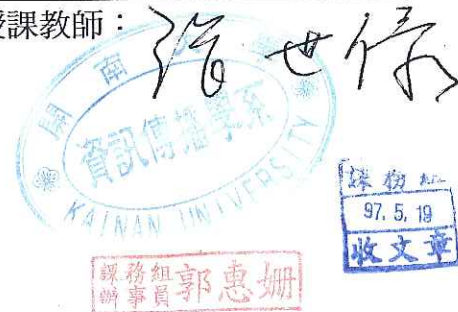 授課教師：
開南大學
資訊傳播學系
KAINAN UNIVERSITY
課務組
97. 5. 19
收文章
課務組
辦事員
郭惠姍